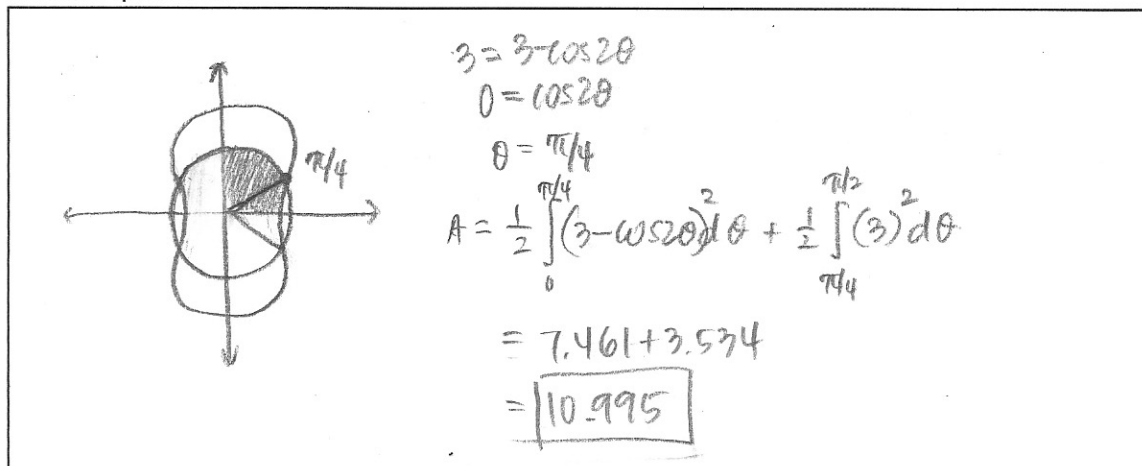 3 = 3-cos2θ
0 = cos2θ
θ = π/4
π/4
A = 1/2 ∫_0^{π/4} (3-cos2θ)^2 dθ + 1/2 ∫_{π/4}^{π/2} (3)^2 dθ
= 7.461+3.534
= 10.995